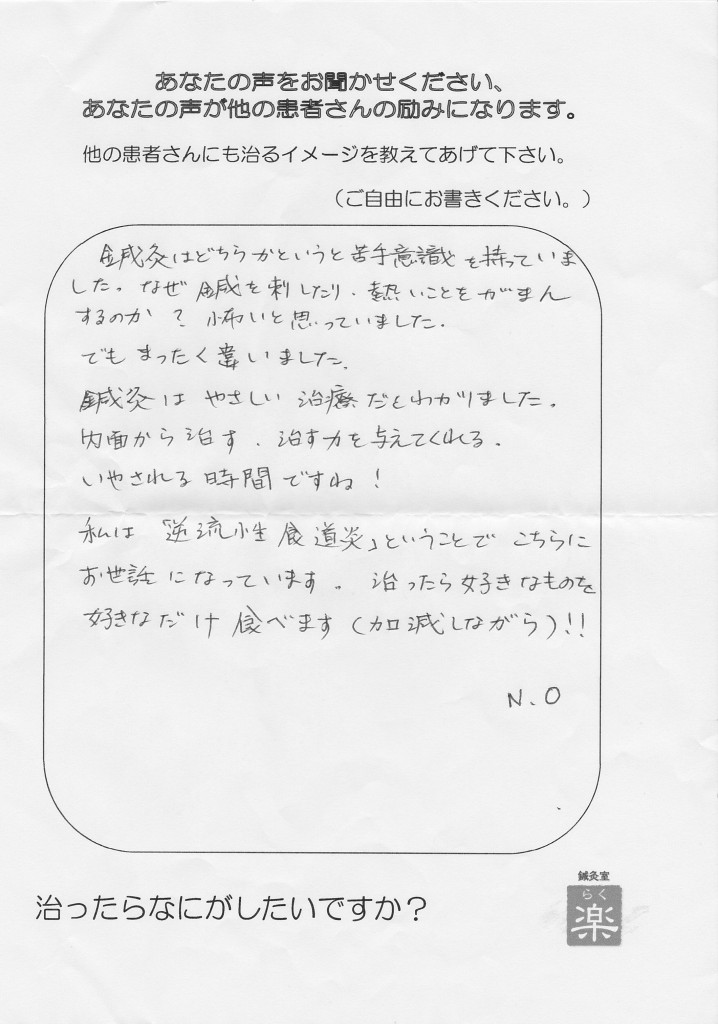 あなたの声をお聞かせください、
あなたの声が他の患者さんの励みになります。
他の患者さんにも治るイメージを教えてあげて下さい。
（ご自由にお書きください。）
鍼灸はどちらかというと苦手意識を持っていま
した。なぜ鍼を刺したり、熱いことをがまん
するのか？怖いと思っていました.
でもまったく違いました.
鍼灸はやさしい治療だとわかりました。
内面から治す、治す力を与えてくれる.
いやされる時間ですね！
私は「逆流性食道炎」ということでこちらに
お世話になっています。治ったら好きなものを
好きなだけ食べます(加減しながら)!!
N.O
治ったらなにがしたいですか？
鍼灸室
らく
楽